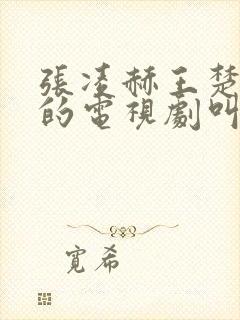 張凌赫王楚
的電視劇叫
寬希